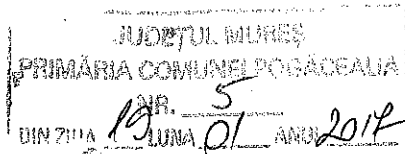 JUDEȚUL MUREȘ
PRIMĂRIA COMUNEI POGĂCEAUA
NR. 5
DIN ZIUA 19 LUNA 01 ANUL 2017